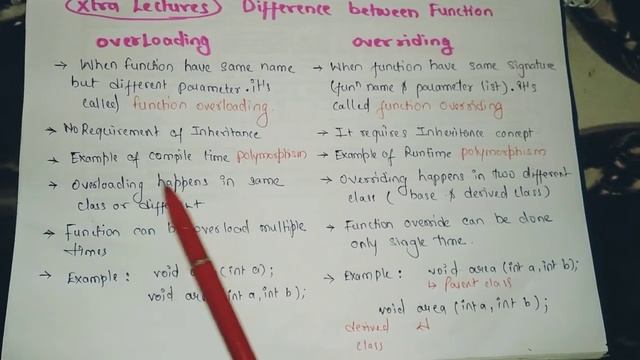 Xtra Lectures Difference between Function
overloading
→ When function have same name
but different parameter. it's
called function overloading.
→ No Requirement of Inheritance
→ Example of compile time polymorphism
→ Overloading happens in same
class or different
→ Function can be overload multiple
times
→ Example : void (int a);
void area(int a, int b);
overriding
→ When function have same signature
(funⁿ name & parameter list). It's
called function overriding
→ It requires Inheritance concept
→ Example of Runtime polymorphism
→ Overriding happens in two different
class ( base & derived class)
→ Function override can be done
only single time.
→ Example : void area (int a, int b);
↳ Parent class
void area (int a, int b);
derived
class